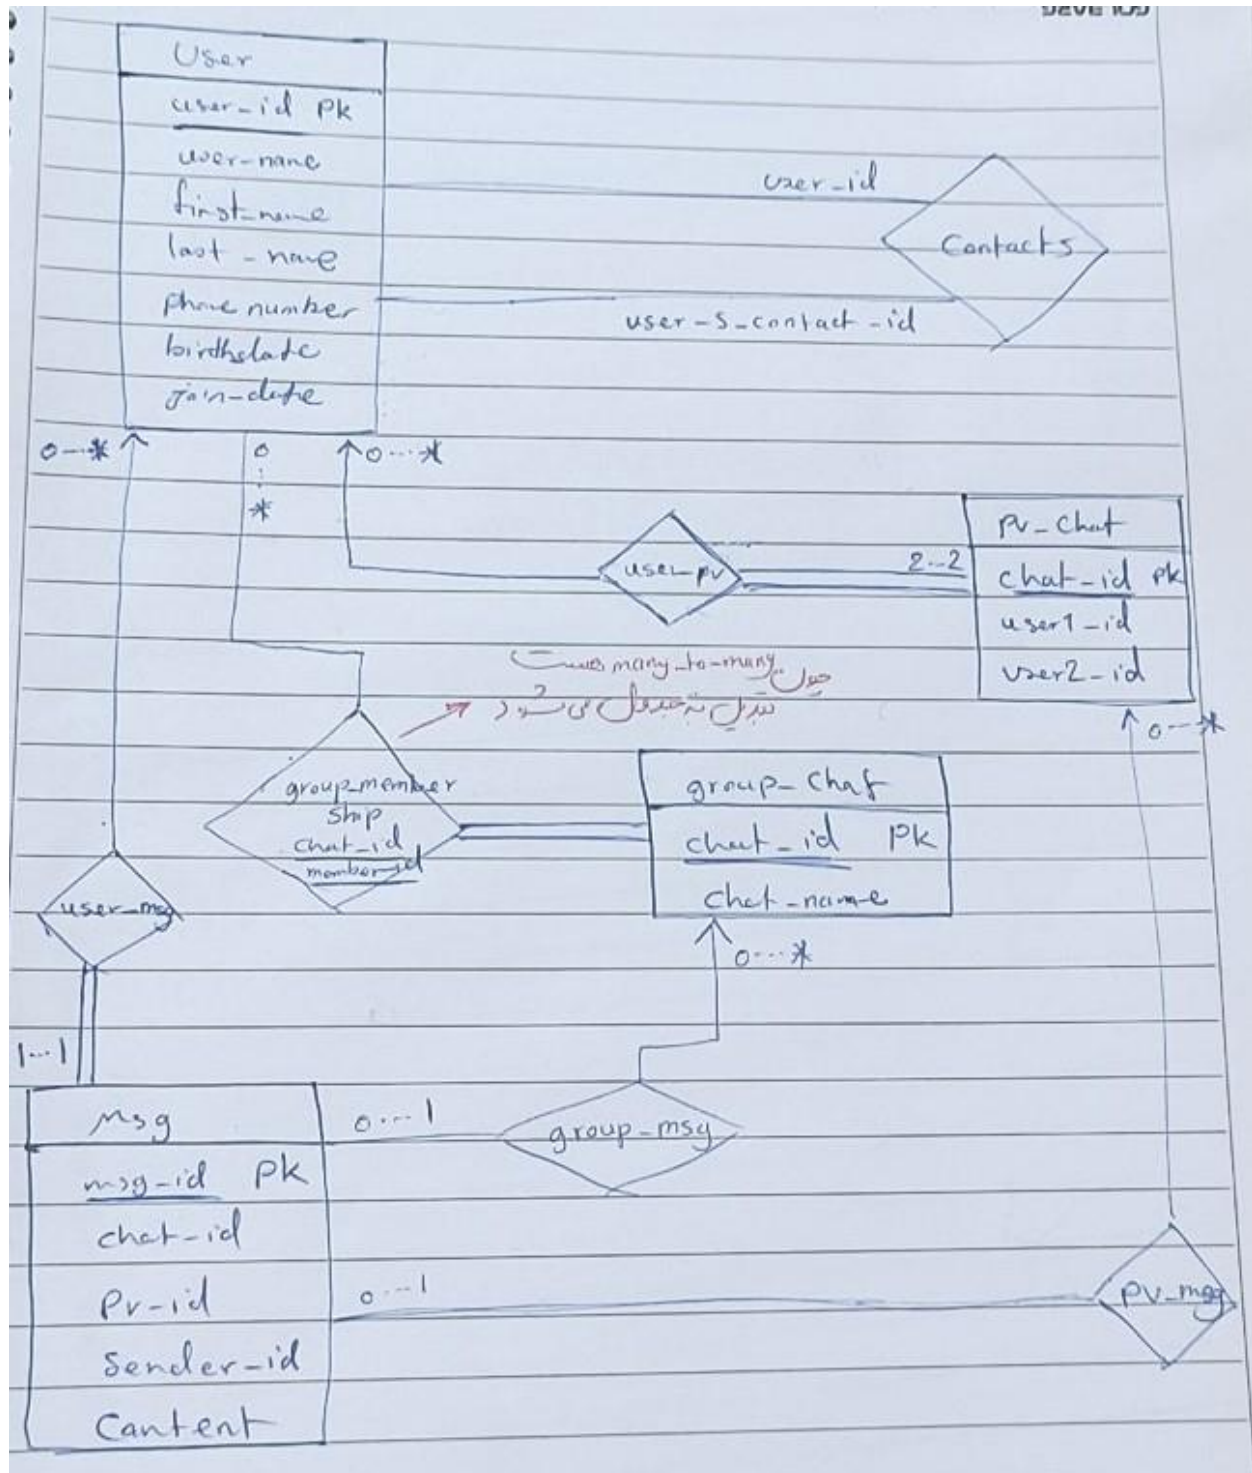 User
user-id PK
user-name
first-name
last-name
phone number
birthdate
join-date
user-id
Contacts
user-s-contact-id
0...*
0...*
0...*
user-pv
2...2
pv-chat
chat-id PK
user1-id
user2-id
0...*
چون many-to-many هست
تبدیل به جدول می شود
group-member
ship
chat-id
member-id
group-chat
chat-id PK
chat-name
0...*
user-msg
1...1
Msg
msg-id PK
chat-id
Pv-id
Sender-id
Cantent
0...1
group-msg
0...1
pv-msg